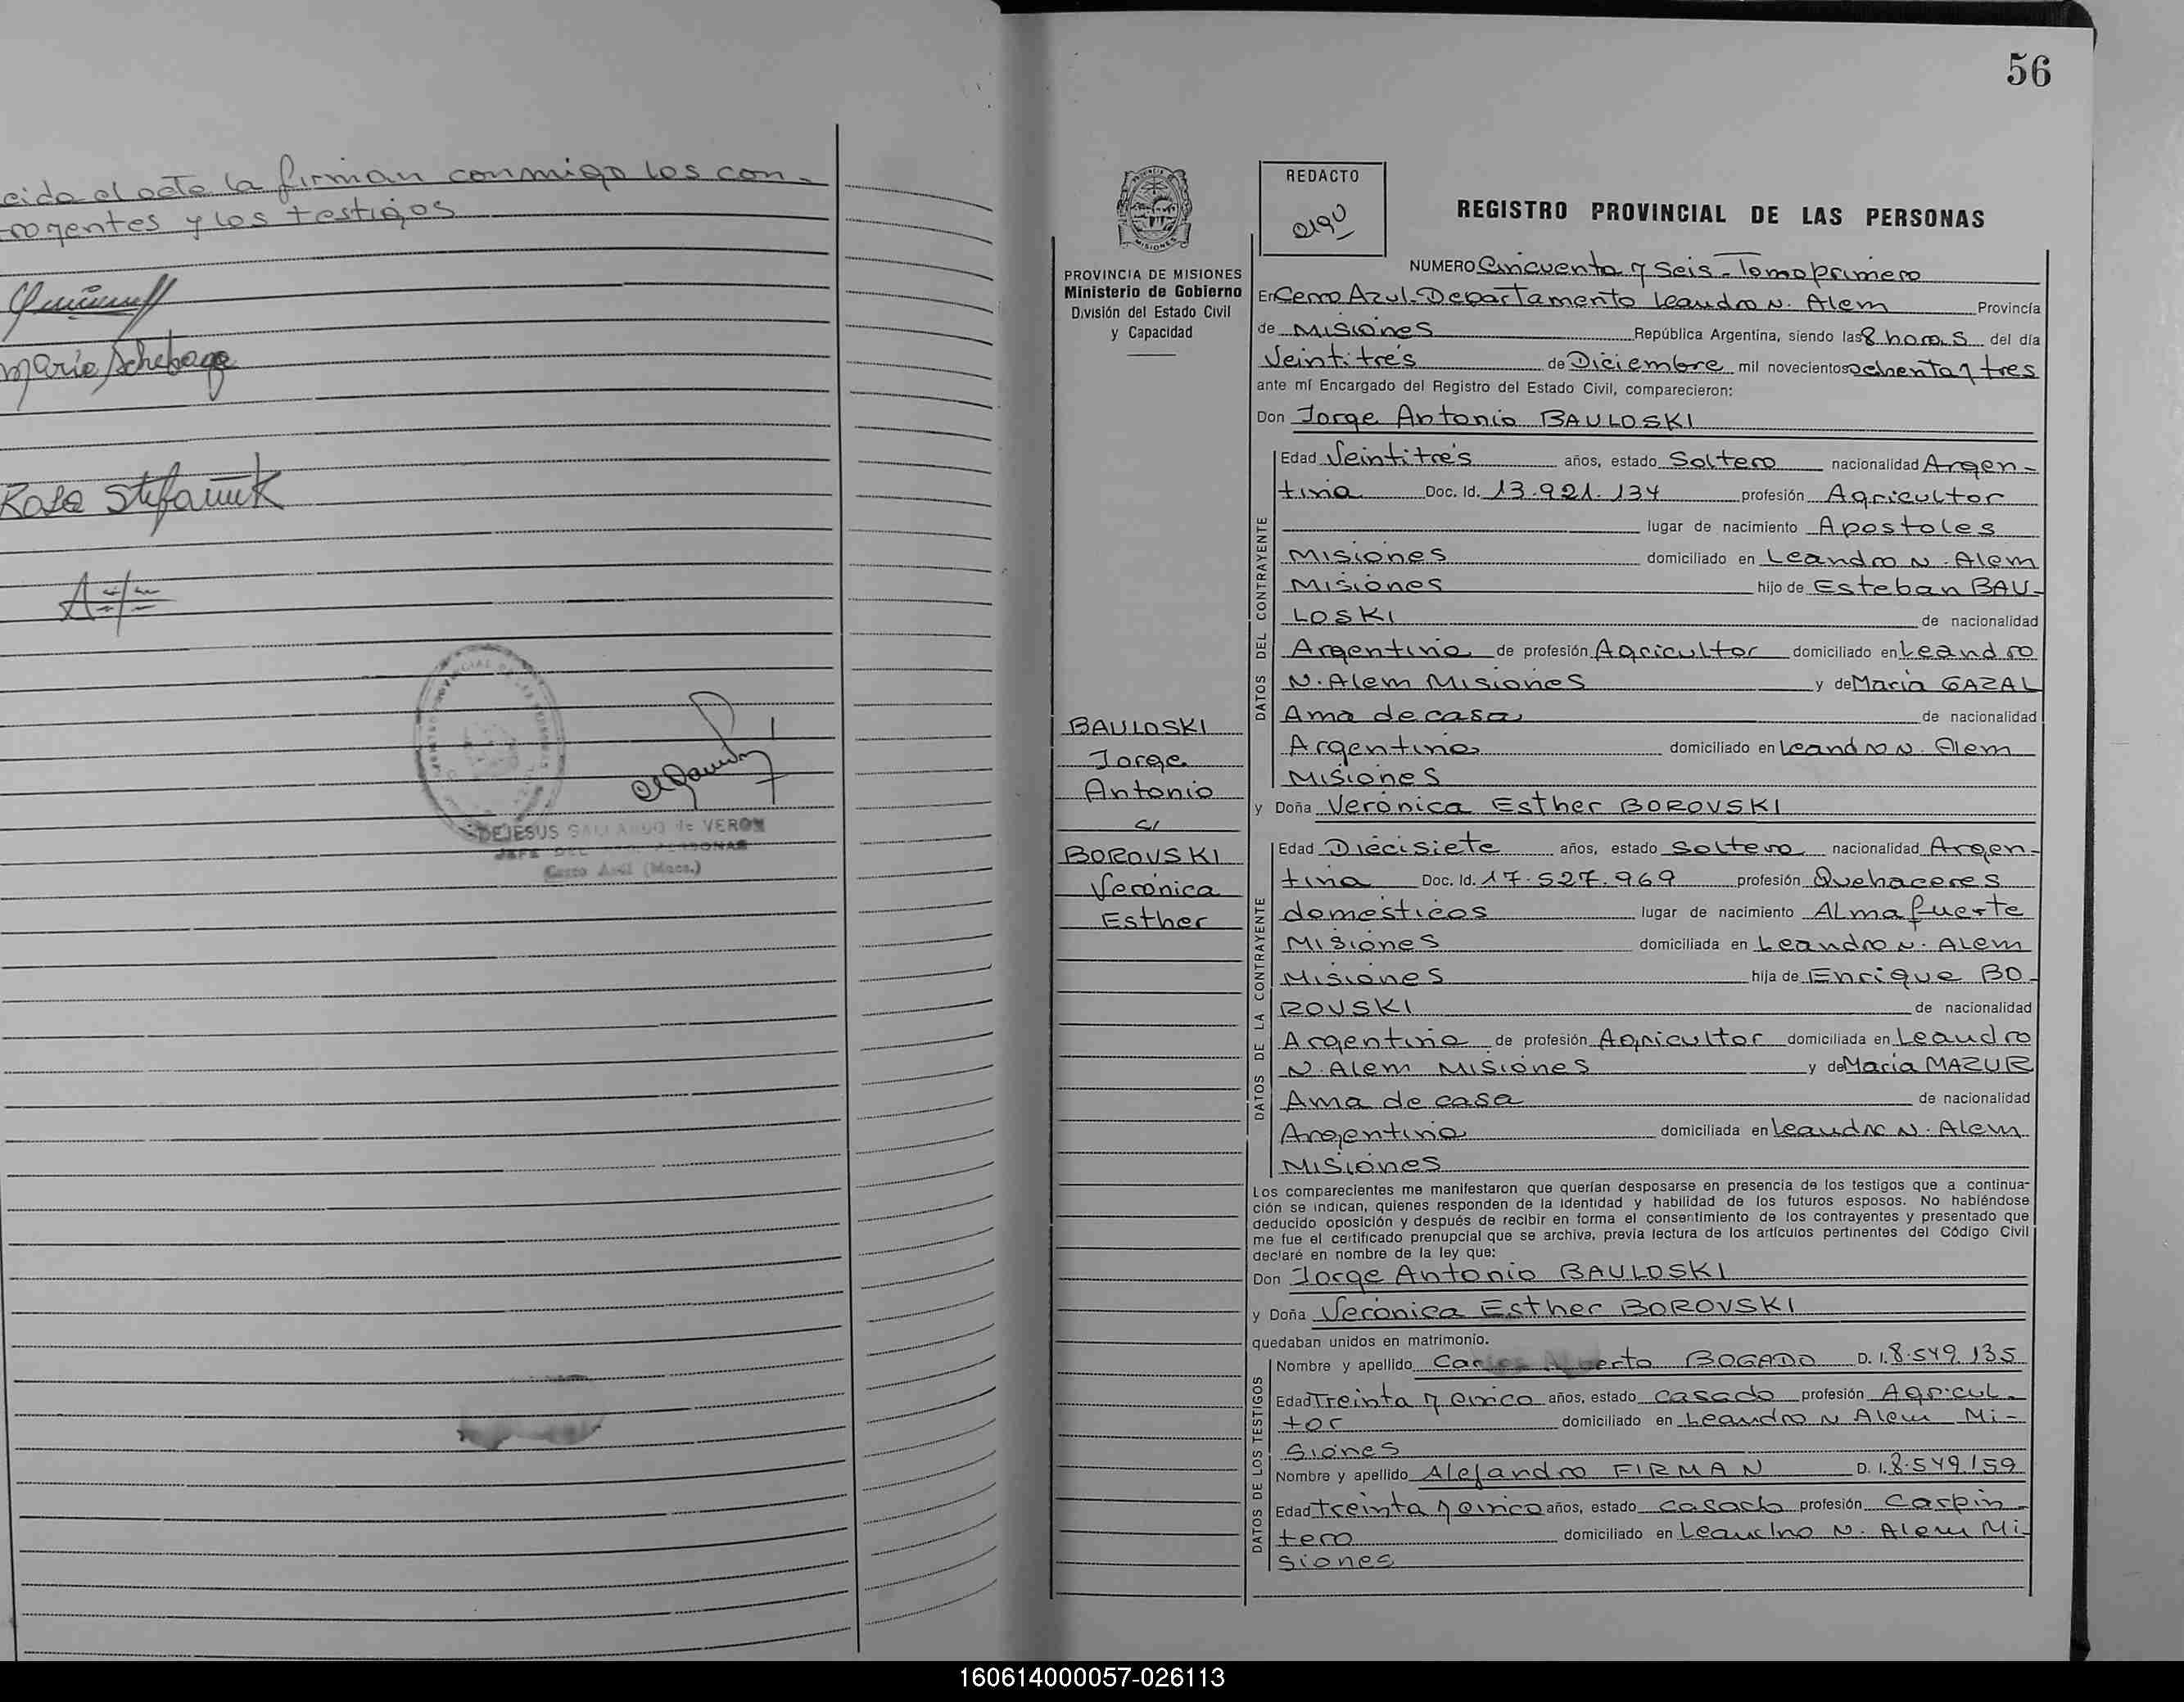 cida el acto la firman conmigo los con-
trayentes y los testigos
Rosa Stefaniuk
DEJESUS GALLARDO de VERON
JEFE DEL REG. PERSONAS
Cerro Azul (Mnes.)
56
PROVINCIA DE MISIONES
Ministerio de Gobierno
División del Estado Civil
y Capacidad
BAULOSKI
Jorge
Antonio
c/
BOROVSKI
Verónica
Esther
REDACTO
REGISTRO PROVINCIAL DE LAS PERSONAS
NUMERO Cincuenta y Seis - Tomo primero
En Cerro Azul - Departamento Leandro N. Alem Provincia
de Misiones República Argentina, siendo las 8 horas del día
Veintitrés de Diciembre mil novecientos ochenta y tres
ante mí Encargado del Registro del Estado Civil, comparecieron:
Don Jorge Antonio BAULOSKI
DATOS DEL CONTRAYENTE
Edad Veintitrés años, estado Soltero nacionalidad Argen-
tina Doc. Id. 13.921.134 profesión Agricultor
lugar de nacimiento Apostoles
Misiones domiciliado en Leandro N. Alem
Misiones hijo de Esteban BAU-
LOSKI de nacionalidad
Argentina de profesión Agricultor domiciliado en Leandro
N. Alem Misiones y de María GAZAL
Ama de casa de nacionalidad
Argentina domiciliado en Leandro N. Alem
Misiones
y Doña Verónica Esther BOROVSKI
DATOS DE LA CONTRAYENTE
Edad Diecisiete años, estado Soltera nacionalidad Argen-
tina Doc. Id. 17.527.969 profesión Quehaceres
domésticos lugar de nacimiento Almafuerte
Misiones domiciliada en Leandro N. Alem
Misiones hija de Enrique BO-
ROVSKI de nacionalidad
Argentina de profesión Agricultor domiciliada en Leandro
N. Alem Misiones y de María MAZUR
Ama de casa de nacionalidad
Argentina domiciliada en Leandro N. Alem
Misiones
Los comparecientes me manifestaron que querían desposarse en presencia de los testigos que a continua-
ción se indican, quienes responden de la identidad y habilidad de los futuros esposos. No habiéndose
deducido oposición y después de recibir en forma el consentimiento de los contrayentes y presentado que
me fue el certificado prenupcial que se archiva, previa lectura de los artículos pertinentes del Código Civil
declaré en nombre de la ley que:
Don Jorge Antonio BAULOSKI
y Doña Verónica Esther BOROVSKI
quedaban unidos en matrimonio.
DATOS DE LOS TESTIGOS
Nombre y apellido Carlos Alberto BOGADO D. I. 8.549.135
Edad Treinta y cinco años, estado casado profesión Agricul-
tor domiciliado en Leandro N Alem Mi-
siones
Nombre y apellido Alejandro FIRMAN D. I. 8.549.159
Edad treinta y cinco años, estado casado profesión Carpin-
tero domiciliado en Leandro N. Alem Mi-
siones
160614000057-026113